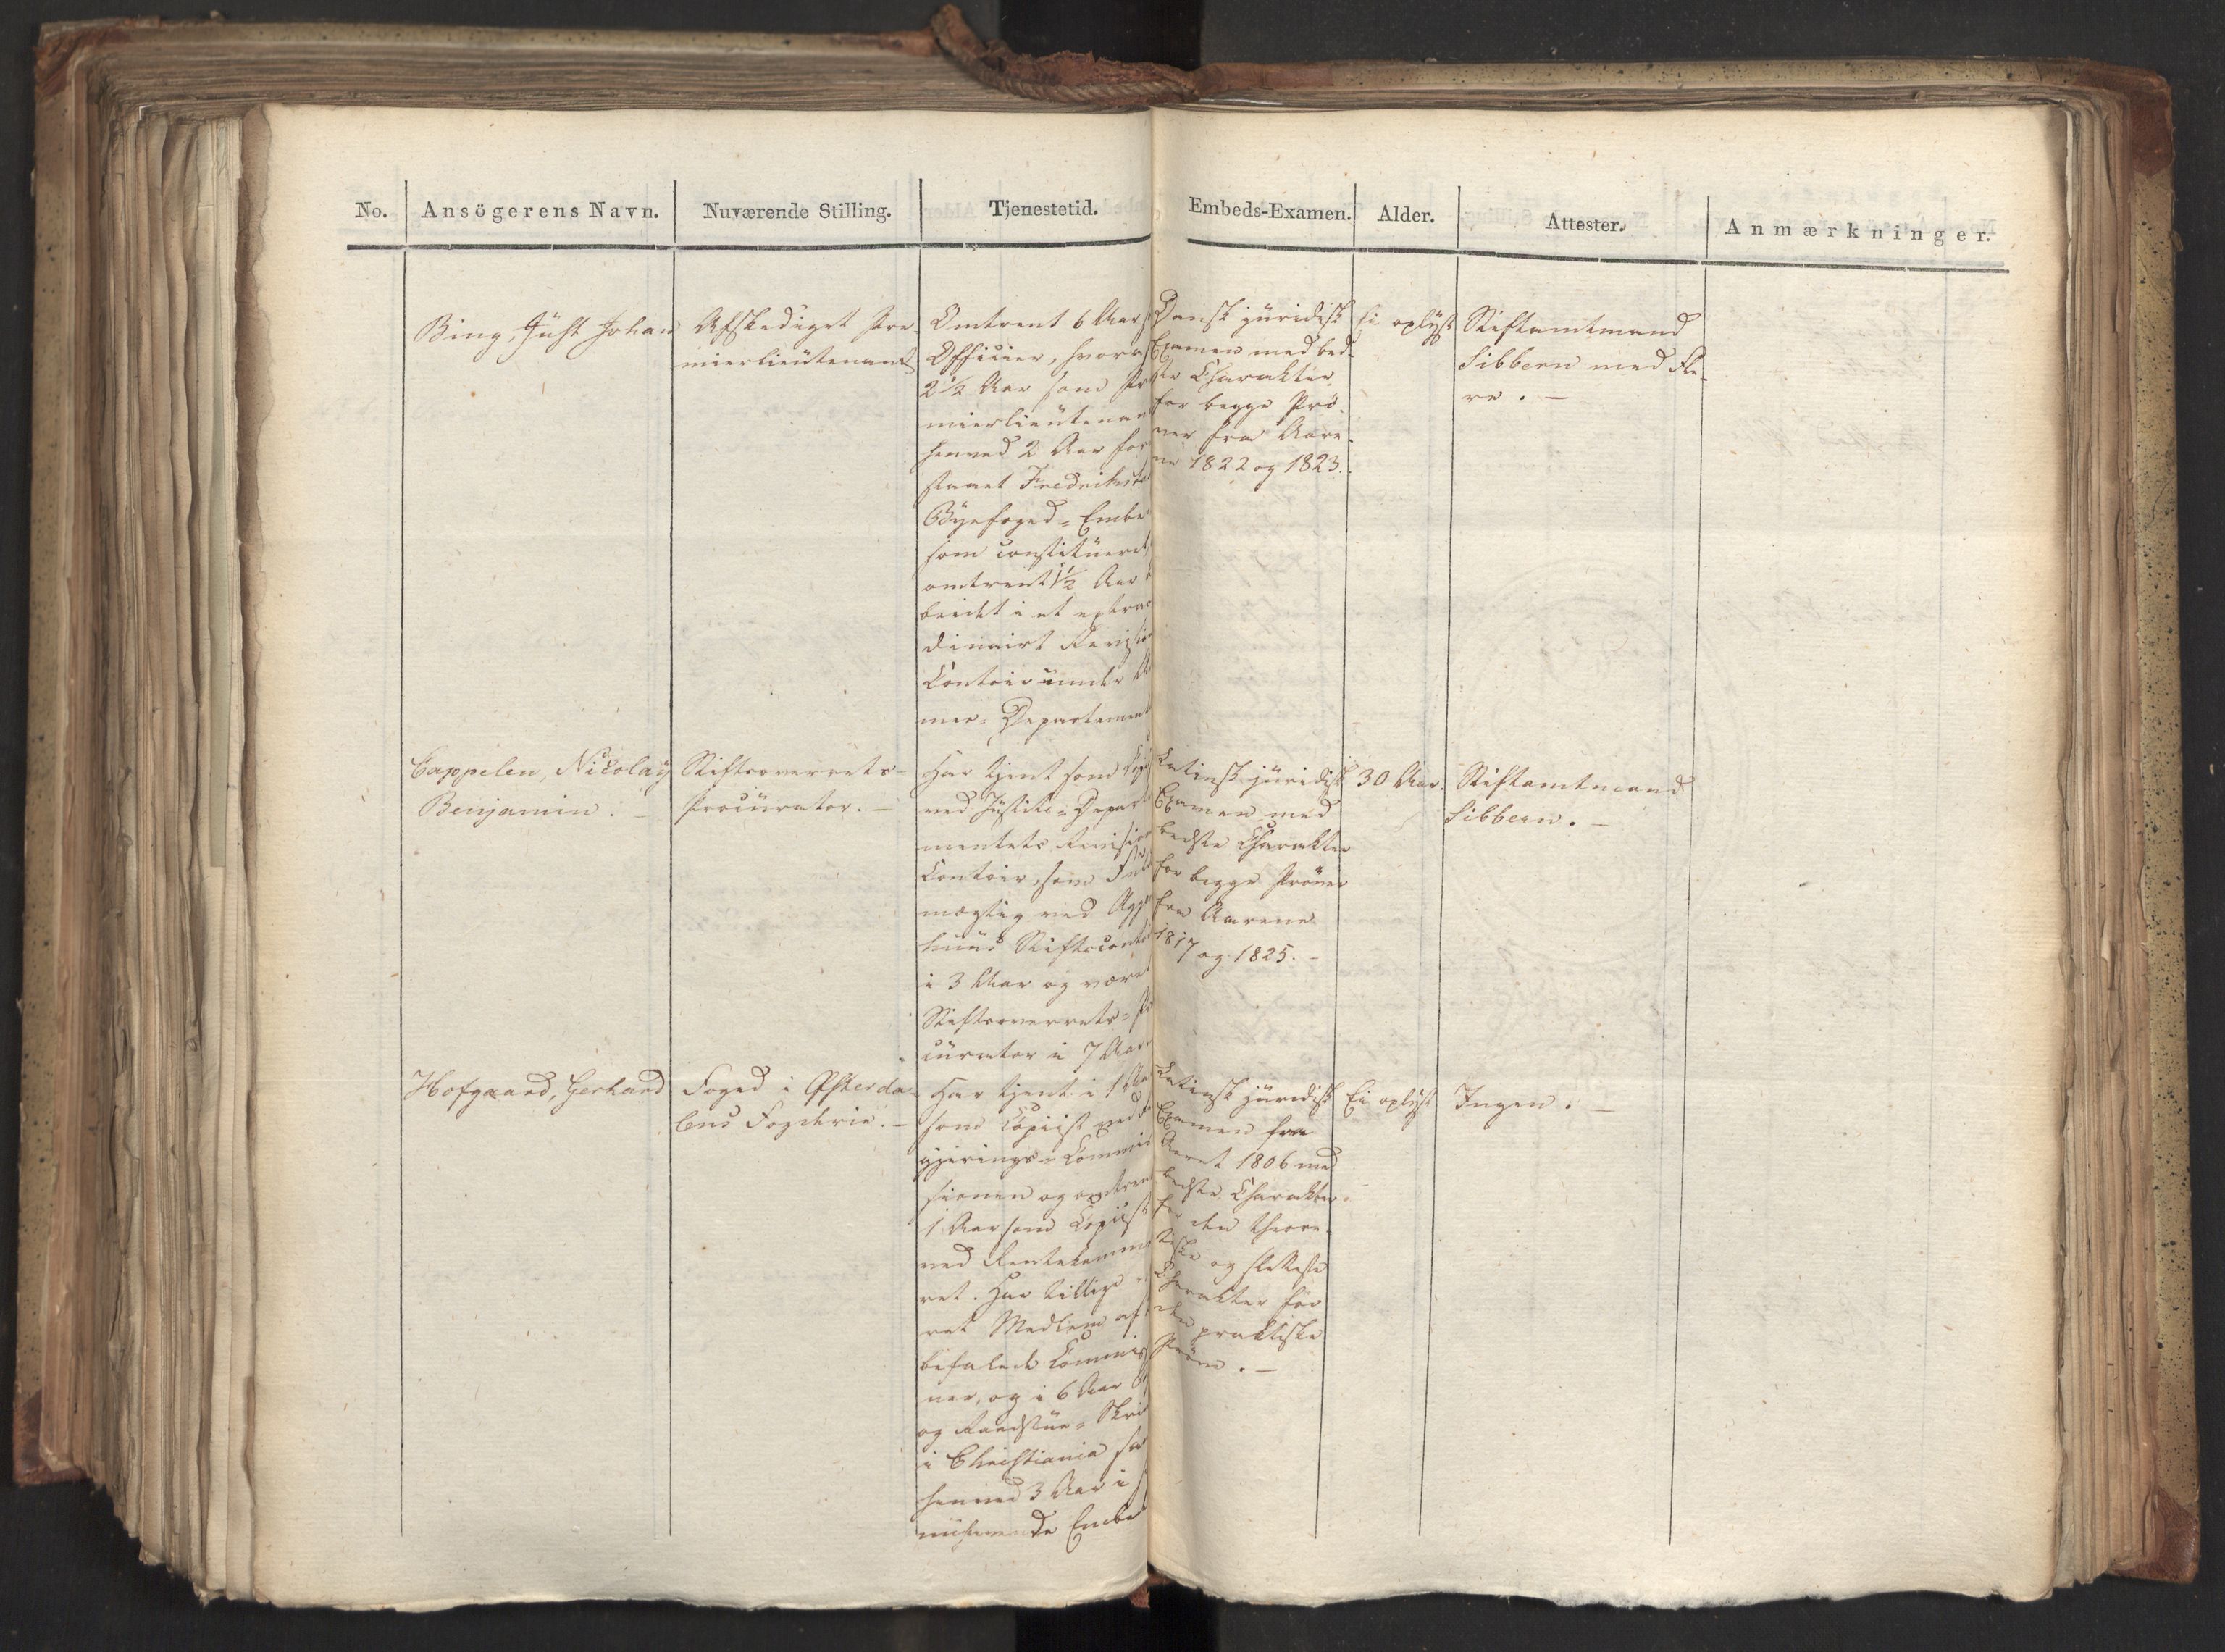 No. Ansögerens Navn. Nuværende Stilling. Tjenestetid. Embeds-Examen. Alder. Attester. Anmærkninger.
Bing, Just Johan
Afskediget Pre-
mierlieutenant
Omtrent 6 Aar
Officier, hvoraf
2½ Aar som Pr
mierlieutenan
henved 2 Aar for
staaet Fredrikst
Byefoged-Embe
som constitueret,
omtrent 1½ Aar
beidet i et extrao
dinairt Revisio
Contoir under
mer-Departemen
Dansk juridisk
Examen med bed-
ste Charakter
for begge Prö-
ver fra Aare-
ne 1822 og 1823.
Ei oplyst
Stiftamtmand
Sibbern med Fle-
re. —
Cappelen, Nicolay
Benjamin. —
Stiftsoverrets-
Procurator. —
Har tjent som Copi
ved Justits-Depart
mentets Revisio
Contoir, som Fuld
mægtig ved Agger
huus Stiftscontoi
i 3 Aar og være
Stiftsoverrets-Pr
curator i 7 Aar
Latinsk juridisk
Examen med
bedste Charakter
for begge Pröver
fra Aarene
1817 og 1825. —
30 Aar.
Stiftamtmand
Sibbern. —
Hofgaard, Gerhard
Foged i Österda-
lens Fogderie. —
Har tjent i 1 Aa
som Copiist ved Re
gjerings-Commis
sionen og omtrent
1 Aar som Copiist
ved Rentekamme
ret. Har tillige
ret Medlem af
befalede Commis
ner, og i 6 Aar B
og Raadstue-Skri
i Christiania sa
henved 3 Aar i
nuhavende Embe
Latinsk juridisk
Examen fra
Aaret 1806 med
bedste Charakter
for den theore-
tiske og sletteste
Charakter for
den praktiske
Pröve. —
Ei oplyst
Ingen. —